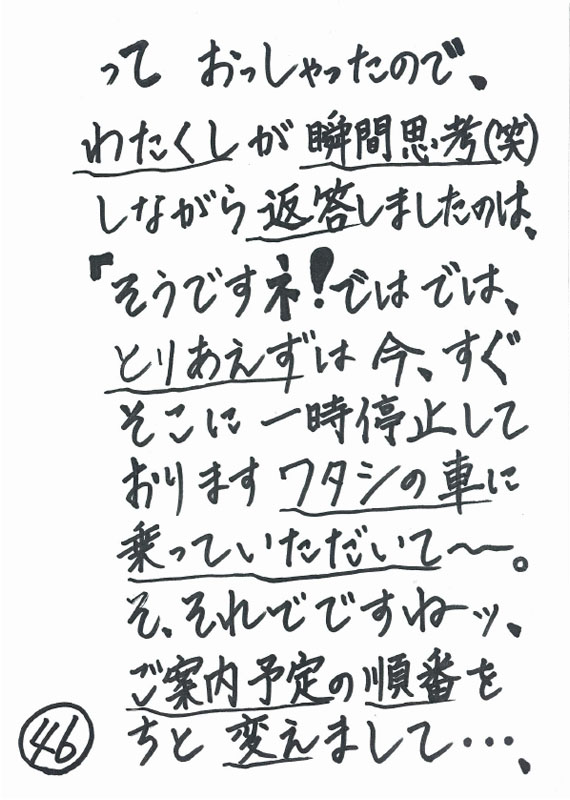 って おっしゃったので、
わたくしが瞬間思考(笑)
しながら返答しましたのは、
「そうですネ!ではでは、
とりあえずは今、すぐ
そこに一時停止して
おりますワタシの車に
乗っていただいて〜。
そ、それでですねーッ、
ご案内予定の順番を
ちと変えまして・・・、
46